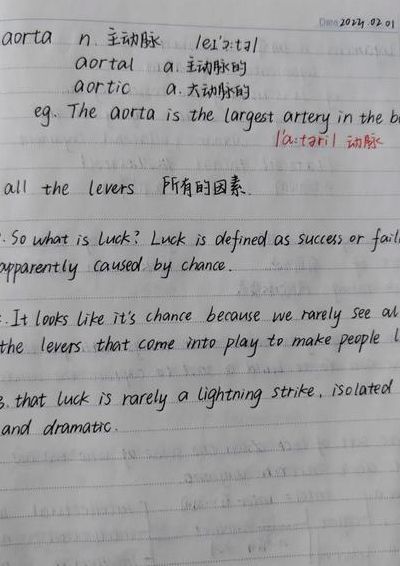 Date 2024.02.01
aorta n. 主动脉 /eɪ'ɔ:tə/
aortal a. 主动脉的
aortic a. 大动脉的
eg. The aorta is the largest artery in the b
/'ɑ:təri/ 动脉
all the levers 所有的因素.
. So what is luck? Luck is defined as success or fail
apparently caused by chance.
. It looks like it's chance because we rarely see al
the levers that come into play to make people l
3. that luck is rarely a lightning strike, isolated
and dramatic.